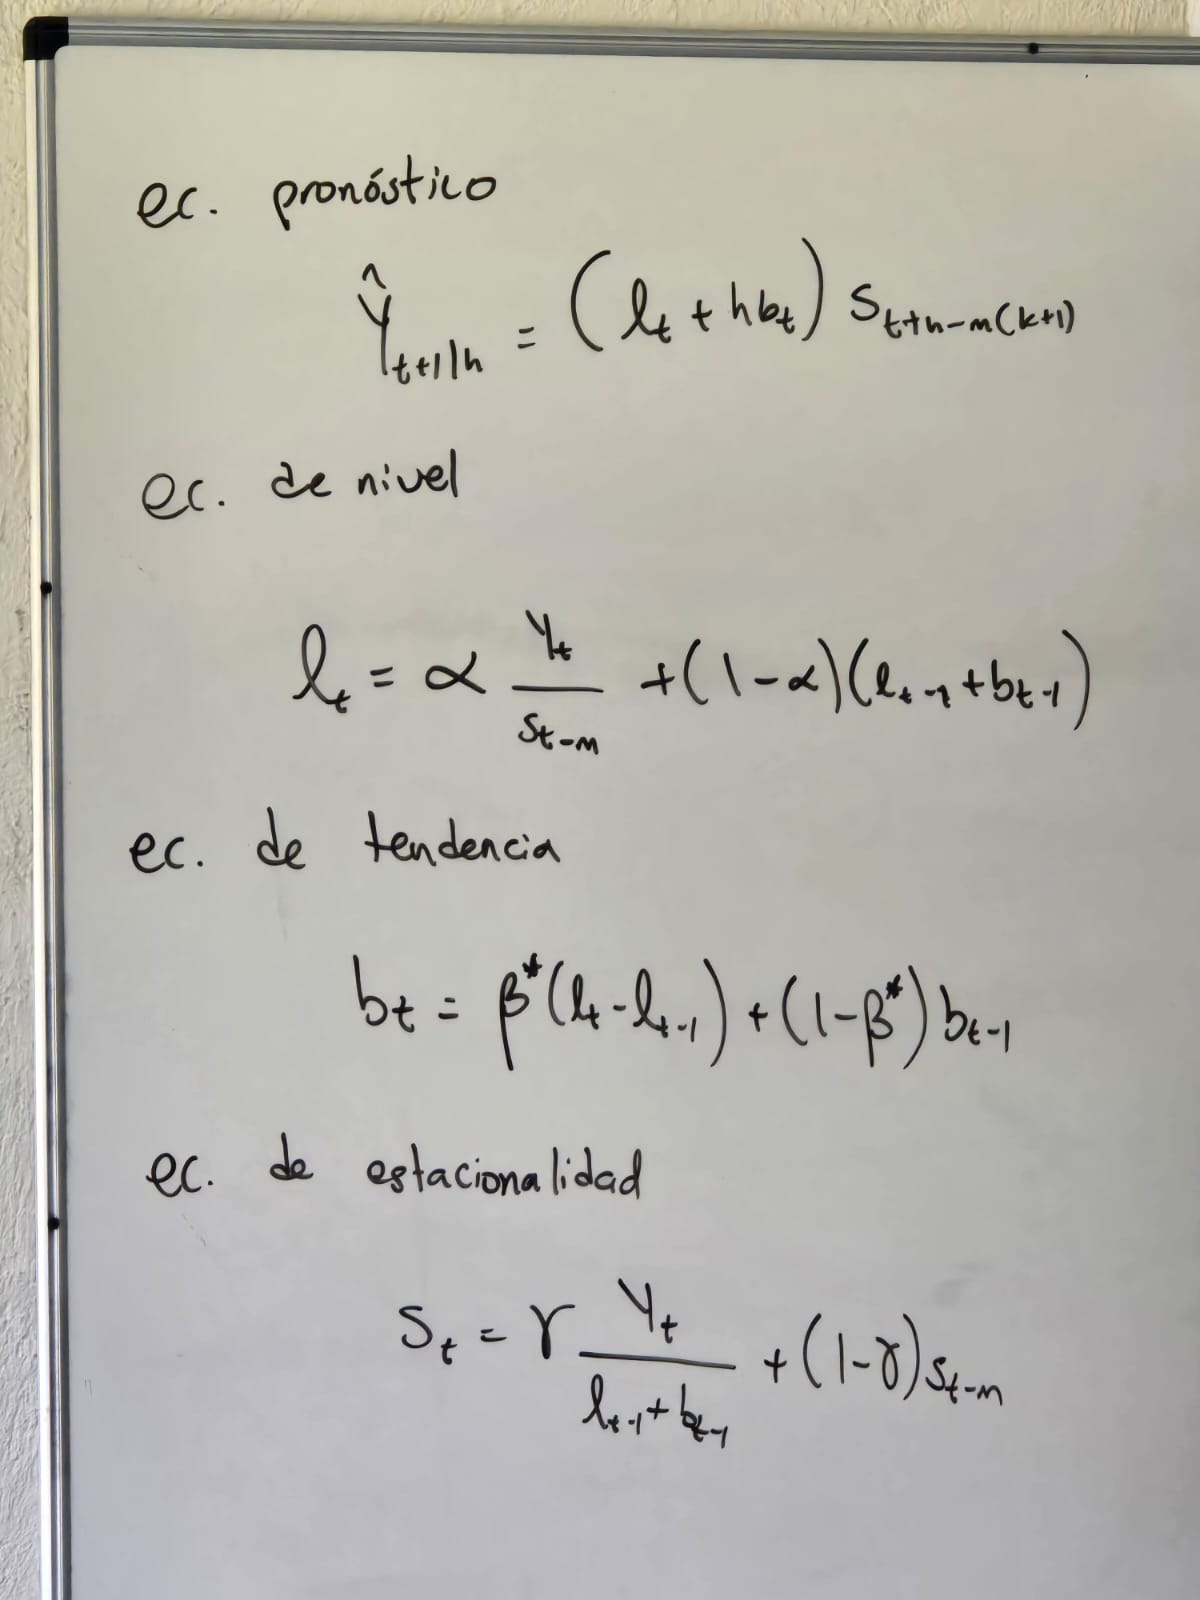 ec. pronóstico
ŷ_{t+1|h} = (ℓ_t + hb_t) S_{t+h-m(k+1)}
ec. de nivel
ℓ_t = α y_t / S_{t-m} + (1-α)(ℓ_{t-1} + b_{t-1})
ec. de tendencia
b_t = β*(ℓ_t - ℓ_{t-1}) + (1-β*) b_{t-1}
ec. de estacionalidad
S_t = γ y_t / (ℓ_{t-1} + b_{t-1}) + (1-γ) S_{t-m}